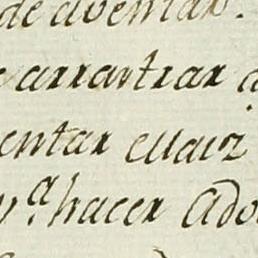 de aventar.
arrastrar a
entar el laiz
pª. hacer Ado